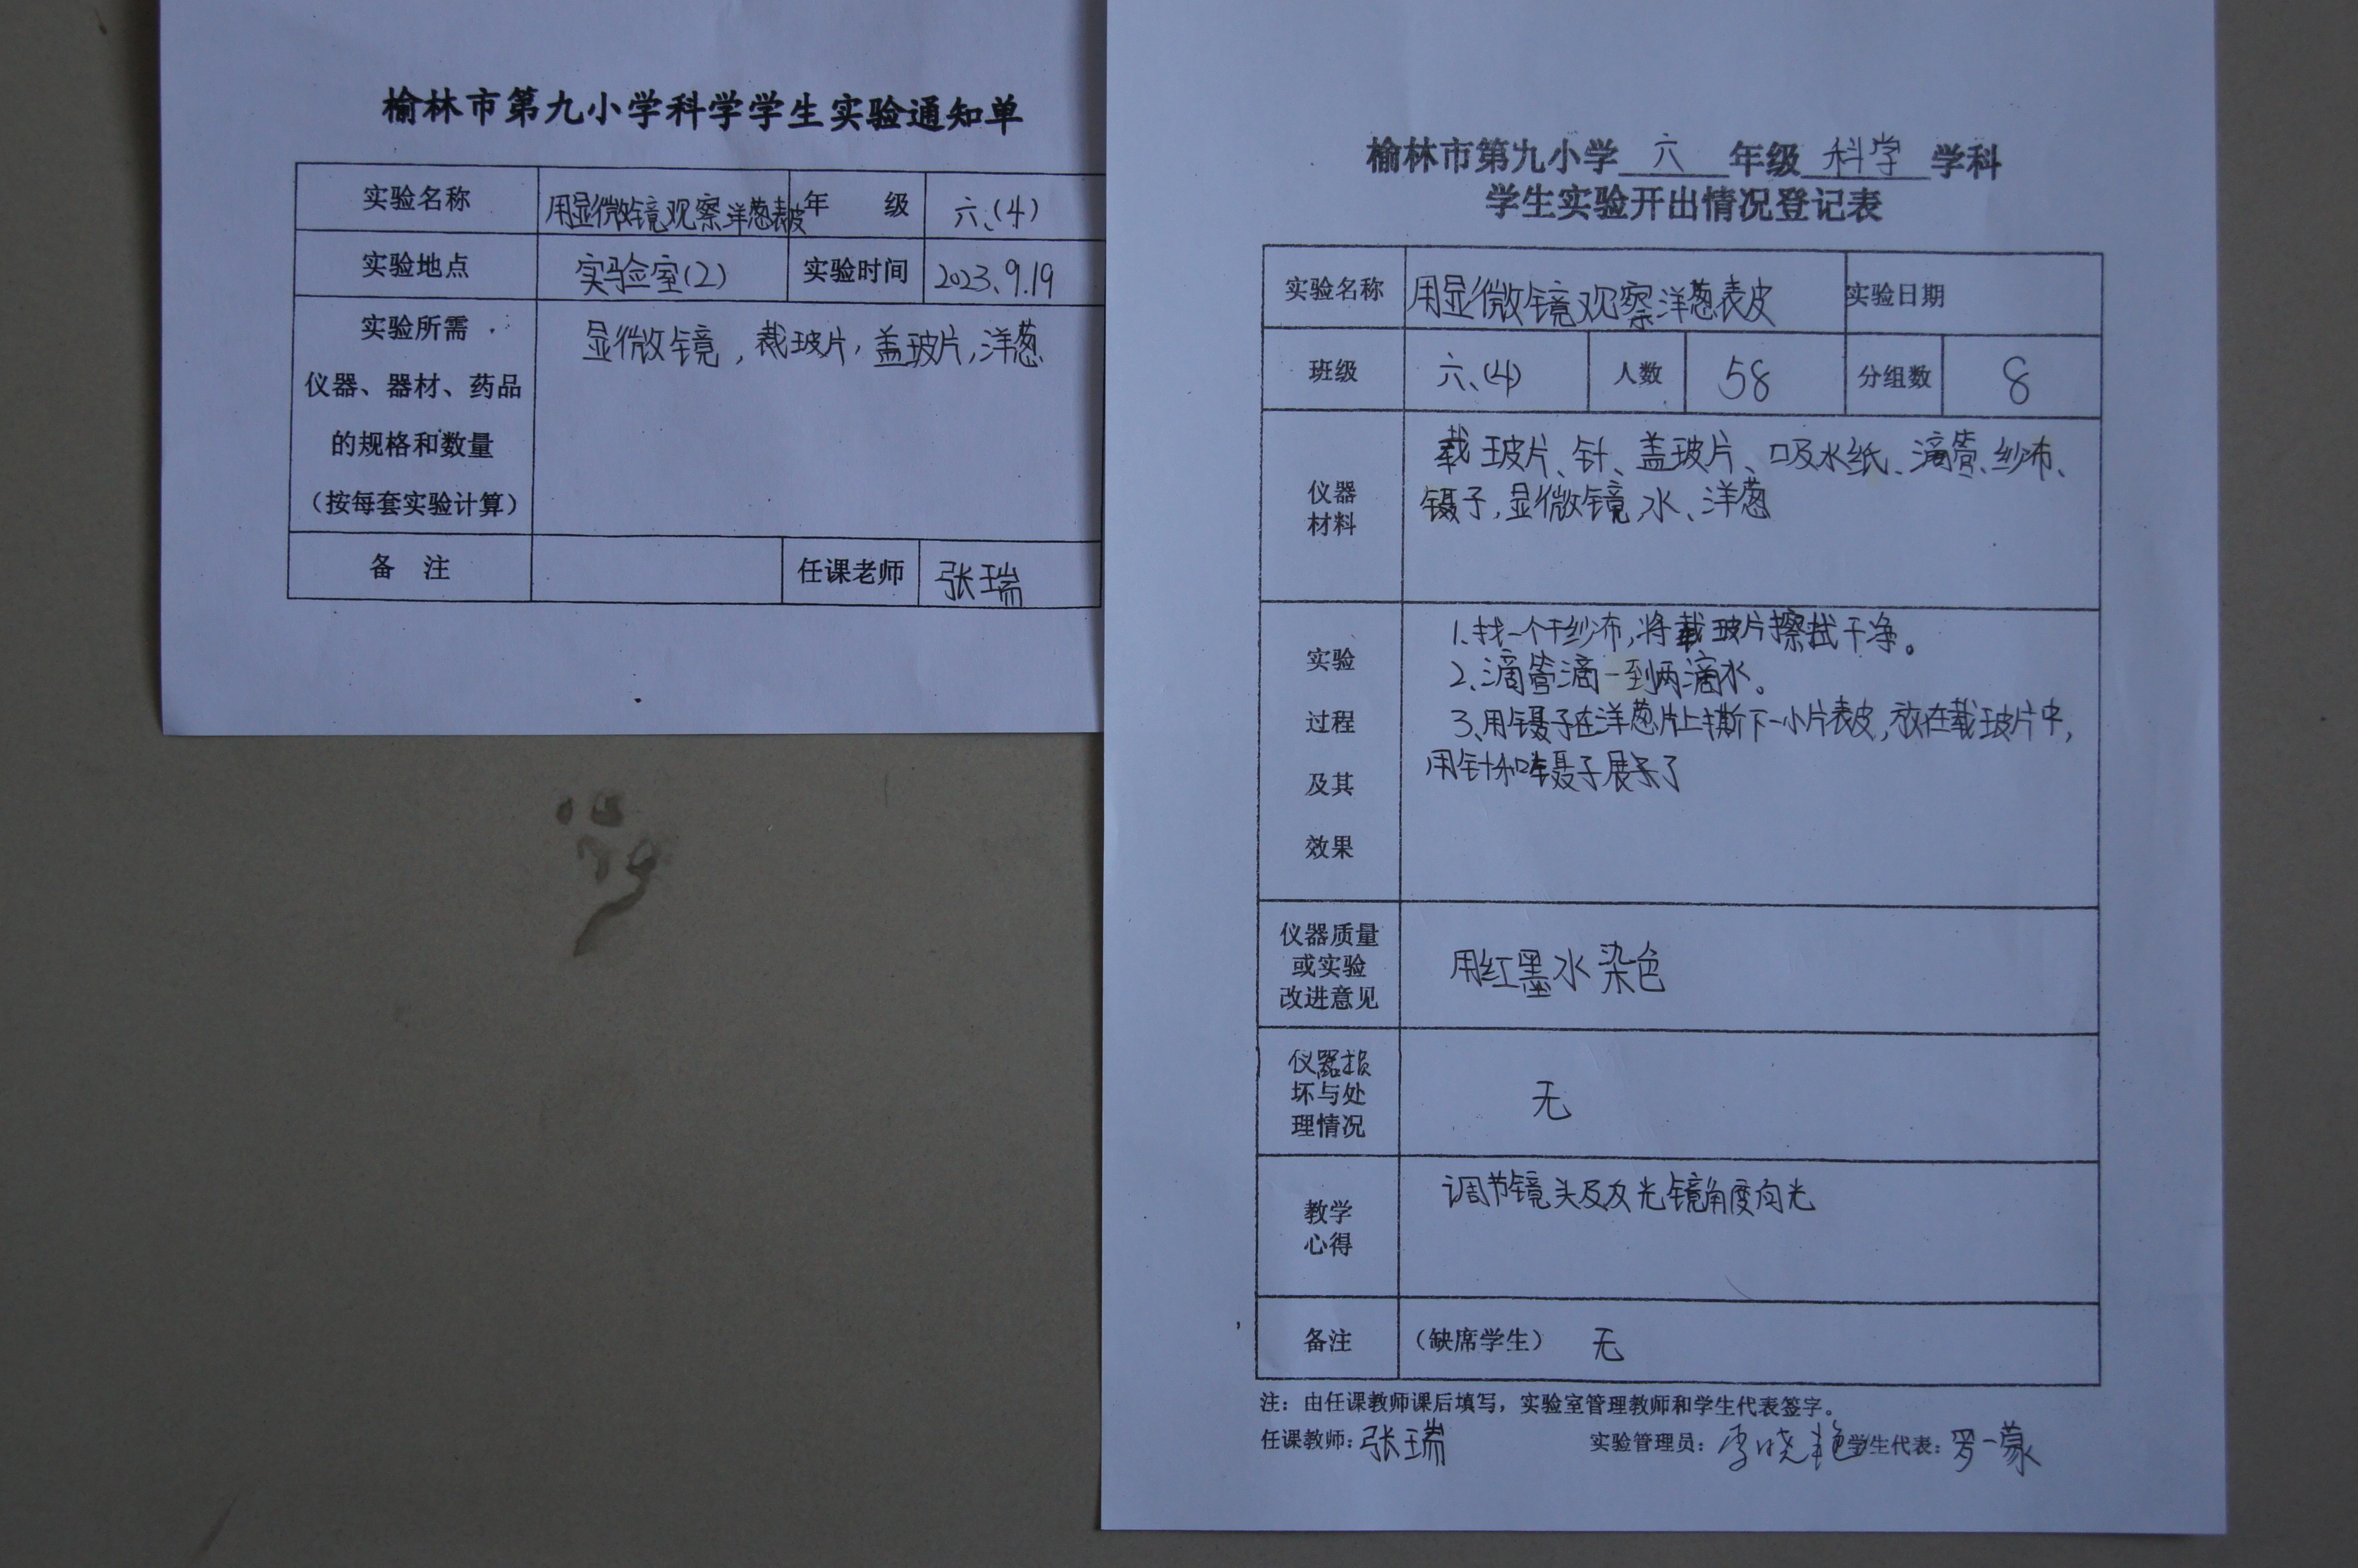 榆林市第九小学科学学生实验通知单
实验名称 用显微镜观察洋葱表皮 年 级 六、(4)
实验地点 实验室(2) 实验时间 2023.9.19
实验所需
仪器、器材、药品
的规格和数量
（按每套实验计算）
显微镜，载玻片，盖玻片，洋葱
备 注 任课老师 张瑞
榆林市第九小学 六 年级 科学 学科
学生实验开出情况登记表
实验名称 用显微镜观察洋葱表皮 实验日期
班级 六、(4) 人数 58 分组数 8
仪器
材料
载玻片、针、盖玻片、吸水纸、滴管、纱布、
镊子，显微镜，水、洋葱
实验
过程
及其
效果
1、找一个干纱布，将载玻片擦拭干净。
2、滴管滴一到两滴水。
3、用镊子在洋葱片上撕下一小片表皮，放在载玻片中，
用针和镊子展示了
仪器质量
或实验
改进意见
用红墨水染色
仪器损
坏与处
理情况
无
教学
心得
调节镜头及反光镜角度向光
备注 （缺席学生） 无
注：由任课教师课后填写，实验室管理教师和学生代表签字。
任课教师：张瑞 实验管理员：李晓艳 学生代表：罗一蒙